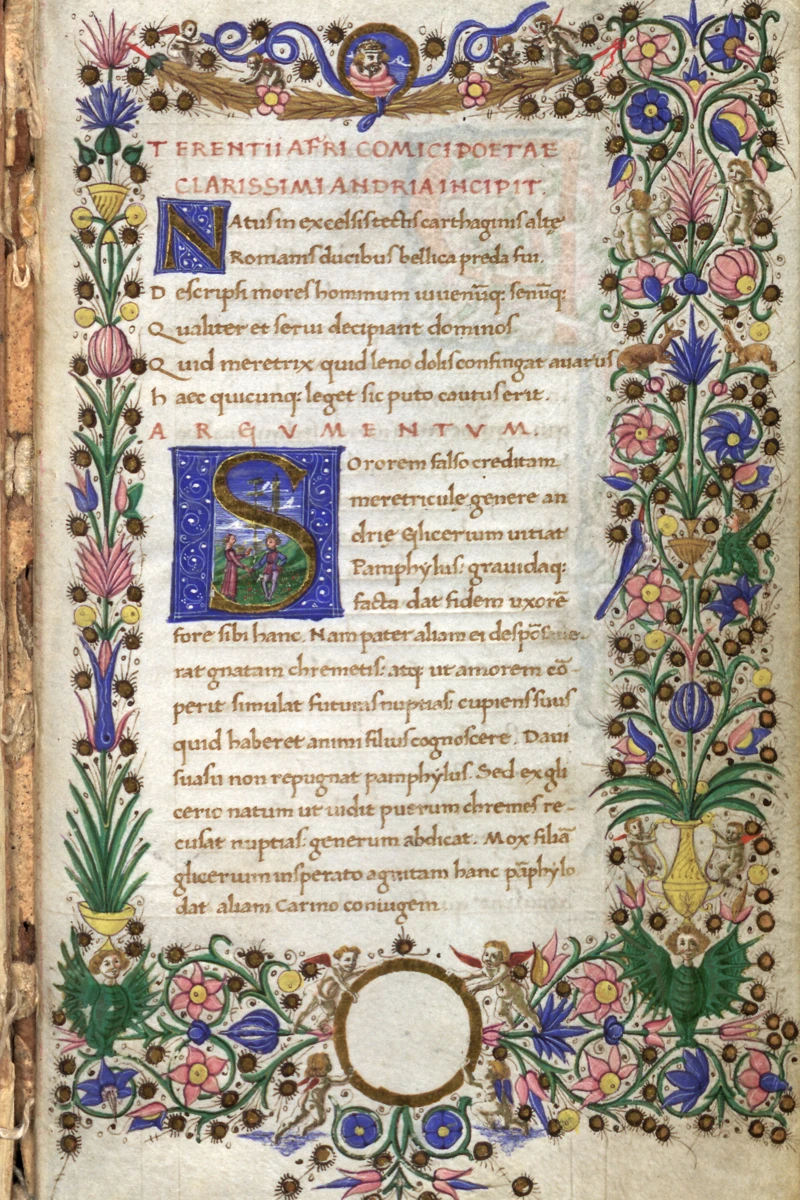 TERENTII AFRI COMICI POETAE
CLARISSIMI ANDRIA INCIPIT.
NAtus in excelsis tectis carthaginis altę
Romanis ducibus bellica preda fui.
Descripsi mores hominum iuuenūq: senūq:
Qualiter et serui decipiant dominos
Quid meretrix quid leno dolis confingat auarus
haec quicunq: leget sic puto cautus erit.
ARGVMENTVM.
SOrorem falso creditam
meretriculę genere an
drię Glicerium uitiat
Pamphylus: grauidaq:
facta dat fidem uxorē
fore sibi hanc. Nam pater aliam ei
rat gnatam chremetis: atq: ut amorem cō
perit simulat futuras nuptias: cupiens suus
quid haberet animi filius cognoscere. Daui
suasu non repugnat pamphylus. Sed ex gli
cerio natum ut uidit puerum chremes re-
cusat nuptias: generum abdicat. Mox filiā
glicerium insperato agnitam hanc pāphylo
dat aliam Carino coniugem